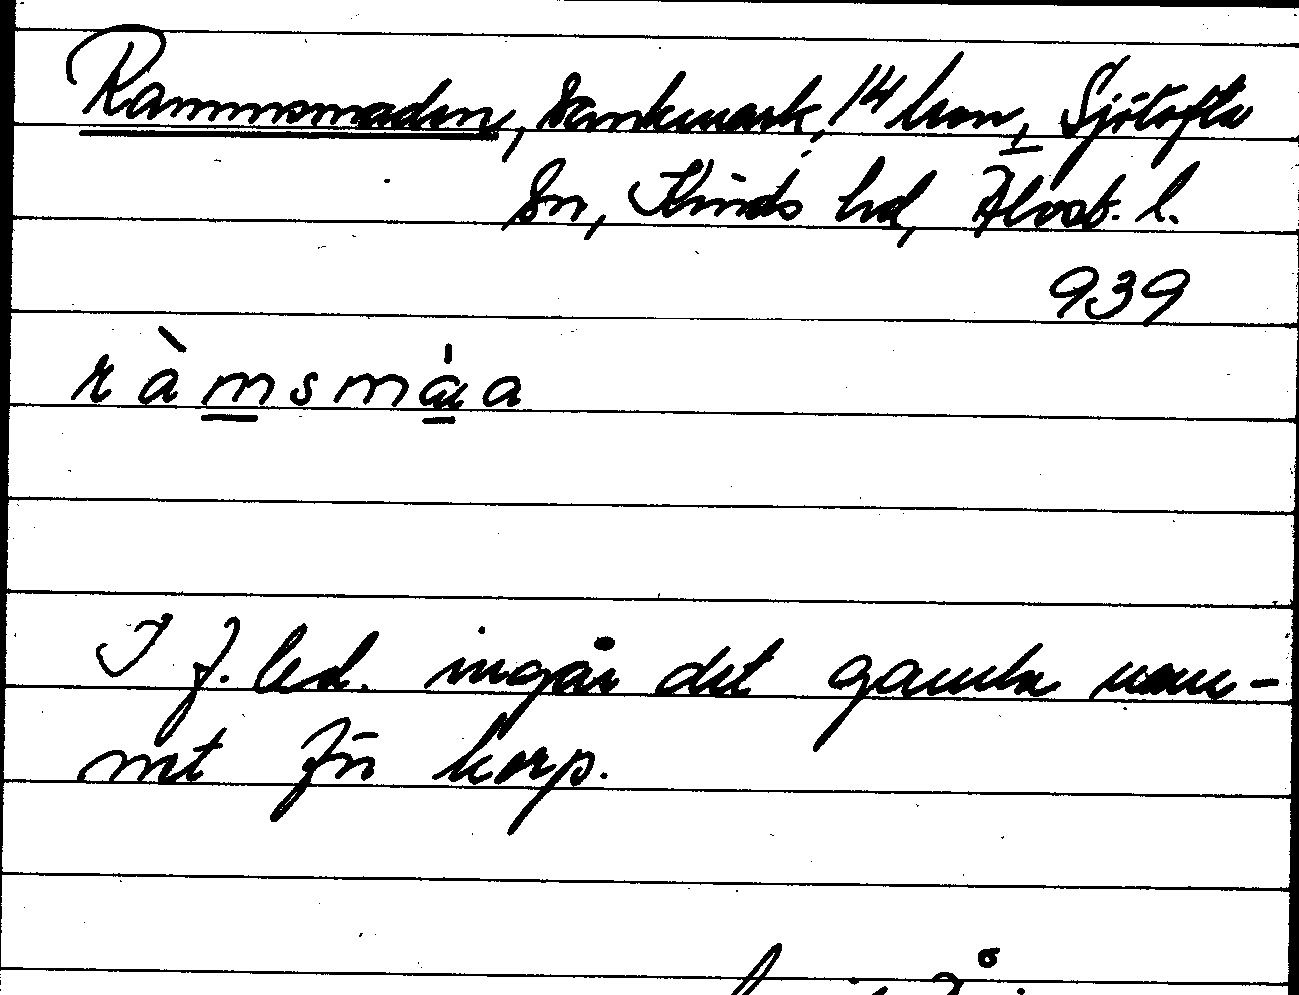 Rammsmaden, Sankmark, 14 hem, Sjötofta
Sn, Kinds hd, Älvsb. l.
939
ràmsmáa
I f. led. ingår det gamla nam-
net för korp.